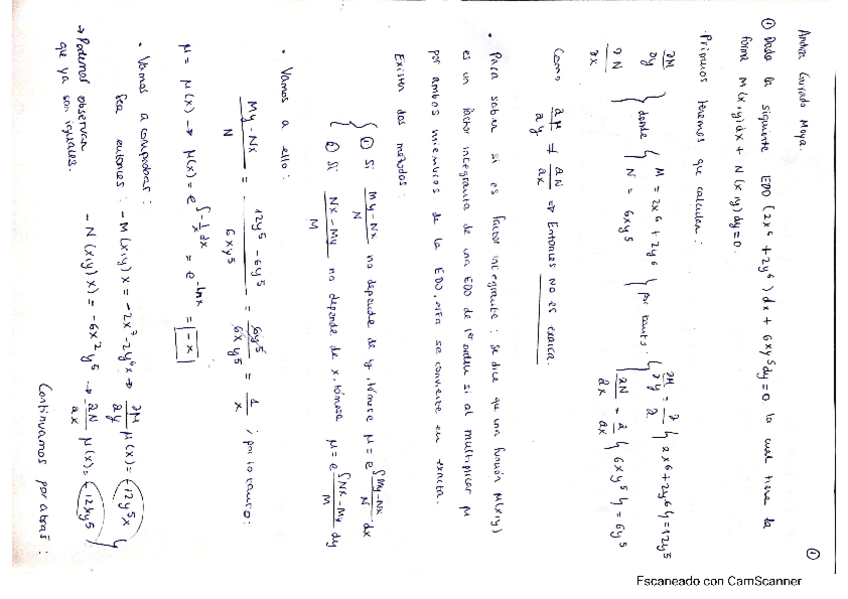 Andrea Guirado Moya.
①
① Dada la siguiente EDO (2x⁶ + 2y⁶) dx + 6xy⁵dy = 0 la cual tiene la
forma M(x,y)dx + N(x,y)dy = 0.
· Primeros tenemos que calcular:
∂M/∂y ∂N/∂x } donde { M = 2x⁶ + 2y⁶ N = 6xy⁵ } por tanto: { ∂M/∂y = ∂/∂ { 2x⁶ + 2y⁶ } = 12y⁵ ∂N/∂x = ∂/∂x { 6xy⁵ } = 6y⁵
Como ∂M/∂y ≠ ∂N/∂x ⇒ Entonces no es exacta.
• Para saber si es factor integrante: se dice que una función μ(x,y)
es un factor integrante de una EDO de 1er orden si al multiplicar μ
por ambos miembros de la EDO, esta se convierte en exacta.
Existen dos métodos:
{ ① Si My-Nx/N no depende de y, tómese μ = e^∫My-Nx/N dx
② Si Nx-My/M no depende de x, tómese μ = e^∫Nx-My/M dy
• Vamos a ello:
My-Nx/N = 12y⁵ - 6y⁵/6xy⁵ = 6y⁵/6xy⁵ = 1/x ; por lo tanto:
μ = μ(x) → μ(x) = e^∫-1/x dx = e^-lnx = -x
• Vamos a comprobar:
Sea entonces: -M(x,y)x = -2x⁷-2y⁶x → ∂M/∂y μ(x) = -12y⁵x
-N(x,y)x) = -6x²y⁵ → ∂N/∂x μ(x) = -12xy⁵
→ Podemos observar
que ya son iguales.
Continuamos por atrás:
Escaneado con CamScanner